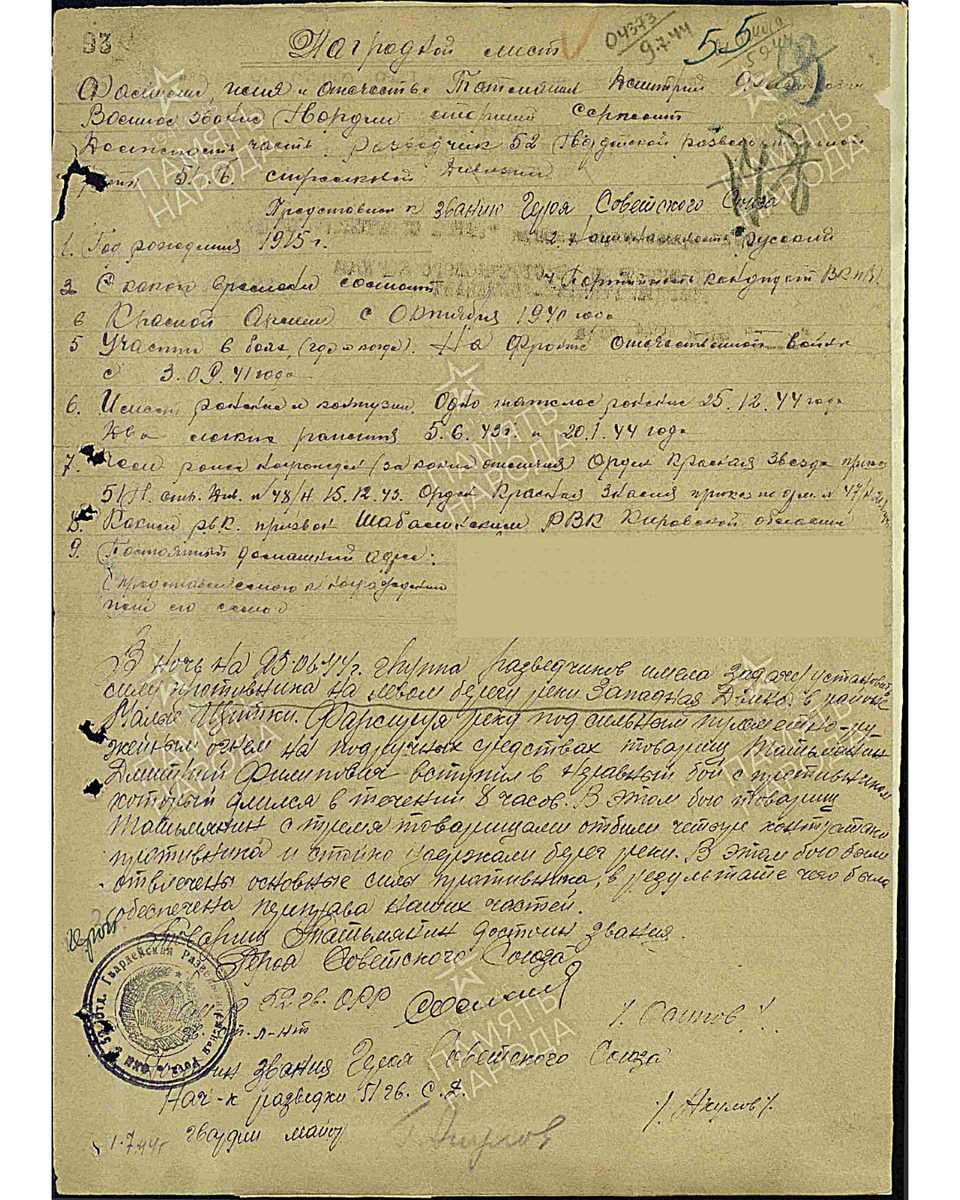 93
Наградной лист
04373
9.7.44
55
Фамилия, имя и отчество Татьмянин Дмитрий Филипович
Военное звание Гвардии старший Сержант
Должность, часть разведчик 52 Гвардейской разведывательной
роты 51 Гв. стрелковой Дивизии
Представлен к званию Героя Советского Союза
1. Год рождения 1915 г. 2. Национальность русский
3 С какого времени состоит 4 Партийность кандидат ВКП(б)
в Красной Армии с Октября 1940 года
5 Участие в боях, (где и когда). На фронте отечественной войны
с 3.09.41 года
6. Имеет ранение и контузии. Одно тяжелое ранение 25.12.44 года
Два легких ранения 5.6.43 г и 20.1.44 года
7. Чем ранее награжден (за какие отличия) Орден Красная Звезда приказ
51 гв. стр. див. № 48/н 15.12.43. Орден Красная Знамя приказ № 47/н
8. Каким рвк. призван Шабалинским РВК Кировской области
9. Постоянный домашний адрес:
представляемого к награждению
или его семьи
В ночь на 25.06.44 г. группа разведчиков имела задачу установить
силы противника на левом берегу реки Западная Двина. в районе
Малые Щитки. Фарсируя реку под сильным пулеметно-ру-
жейным огнем на подручных средствах товарищ Татьмянин
Дмитрий Филипович вступил в неравный бой с противником
который длился в течении 8 часов. В этом бою товарищ
Татьмянин с тремя товарищами отбили четыре контратаки
противника и стойко удержали берег реки. В этом бою были
отвлечены основные силы противника, в результате чего была
обеспечена переправа наших частей.
Товарищ Татьмянин достоин звания
Героя Советского Союза
52 гв. ОРР
ст. л-нт /Осипов/
звания Героя Советского Союза
Нач-к разведки 51 гв. С.Д.
гвардии майор /Акулов/
1.7.44 г
ПАМЯТЬ
НАРОДА